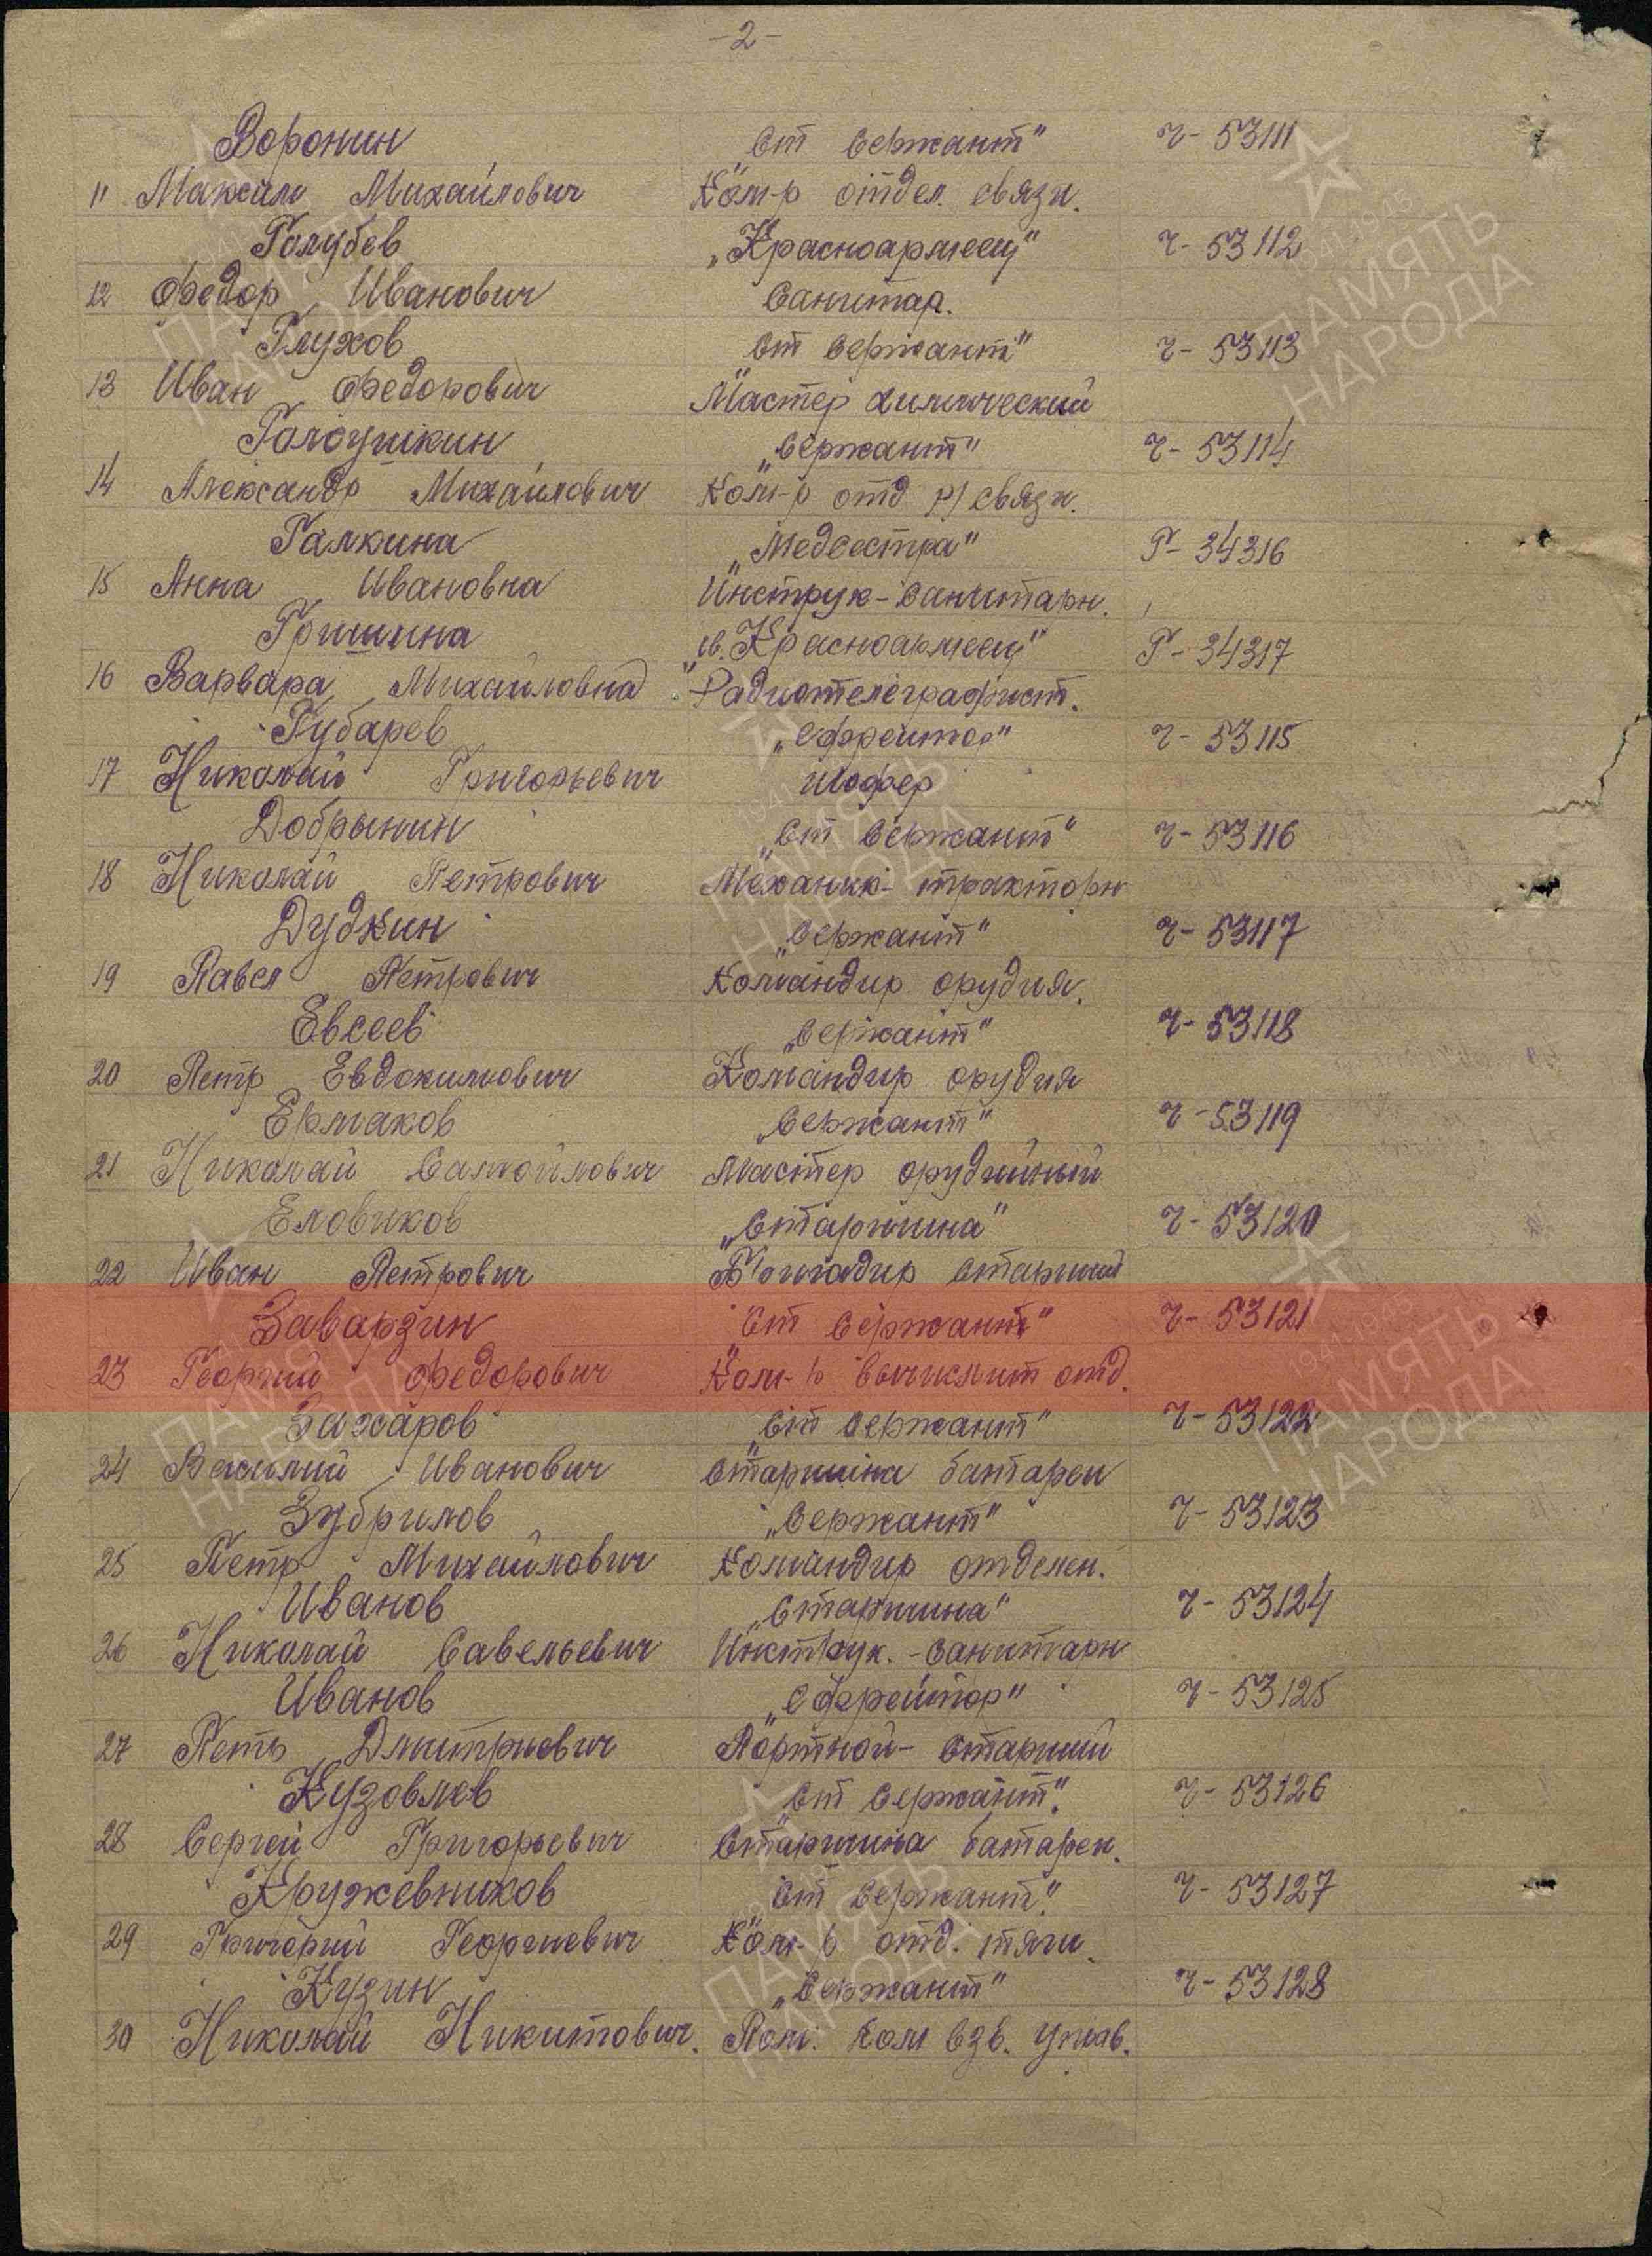 -2-
Воронин „Ст Сержант" г- 53111
11 Максим Михайлович Ком-р отдел. связи.
Голубев „Красноармеец" г- 53112
12 Федор Иванович Санитар.
Глухов „Ст Сержант" г- 53113
13 Иван Федорович Мастер химический
Голоушкин „Сержант" г- 53114
14 Александр Михайлович Ком-р отд р/связи.
Галкина „Медсестра" Г- 34316
15 Анна Ивановна Инструк-Санитарн.
Гришина „Ев. Красноармеец" Г- 34317
16 Варвара Михайловна Радиотелеграфист.
Губарев „Ефрейтор" г- 53115
17 Николай Григорьевич Шофер
Добрынин „Ст Сержант" г- 53116
18 Николай Петрович Механик- тракторн
Дудкин „Сержант" г- 53117
19 Павел Петрович Командир орудия.
Евсеев „Сержант" г- 53118
20 Петр Евдокимович Командир орудия
Ермаков „Сержант" г- 53119
21 Николай Самойлович Мастер орудийный
Еловиков „Старшина" г- 53120
22 Иван Петрович Бригадир старший
Заварзин „Ст Сержант" г- 53121
23 Георгий Федорович Ком-р вычислит отд.
Захаров „Ст Сержант" г- 53122
24 Василий Иванович Старшина батареи
Зубрилов „Сержант" г- 53123
25 Петр Михайлович Командир отделен.
Иванов „Старшина" г- 53124
26 Николай Савельевич Инструк. -Санитарн
Иванов „Ефрейтор" г- 53125
27 Петр Дмитриевич Портной- старший
Кузовлев „Ст Сержант". г- 53126
28 Сергей Григорьевич Старшина батареи.
Кружевников „Ст Сержант". г- 53127
29 Григорий Георгиевич Ком-р отд. тяги.
Кузин „Сержант" г- 53128
30 Николай Никитович. Пом. Ком взв. управ.
ПАМЯТЬ
НАРОДА
1941 1945